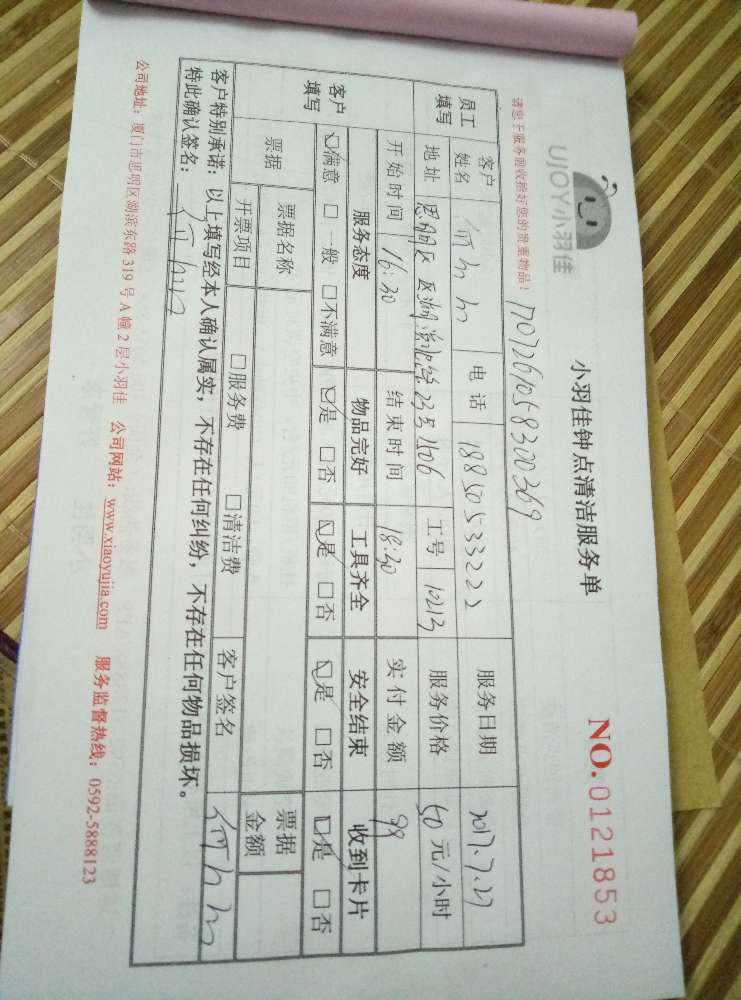 UJOY小羽佳
小羽佳钟点清洁服务单
NO.0121853
请您于服务前收捡好您的贵重物品!
1707261058300369
员工填写
客户姓名 电话 18850533222 服务日期 2017.7.27
地址 思明区 235 1106 工号 10213 服务价格 50元/小时
开始时间 16:30 结束时间 18:30 实付金额 99
客户填写
服务态度 物品完好 工具齐全 安全结束 收到卡片
满意 一般 不满意 是 否 是 否 是 否 是 否
票据 票据名称 票据金额
开票项目 服务费 清洁费 客户签名
客户特别承诺:以上填写经本人确认属实,不存在任何纠纷,不存在任何物品损坏。
特此确认签名:
公司地址:厦门市思明区湖滨东路319号A幢2层小羽佳 公司网站:www.xiaoyujia.com 服务监督热线:0592-5888123